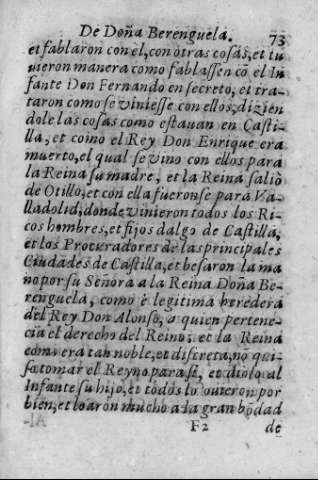 De Doña Berenguela. 73
et fablaron con èl, con otras cosas, et tu
uieron manera como fablassen cõ el In
fante Don Fernando en secreto, et tra-
taron como se viniesse con ellos, dizien
dole las cosas como estauan en Casti-
lla, et como el Rey Don Enrique era
muerto, el qual se vino con ellos para
la Reina su madre, et la Reina saliò
de Otillo, et con ella fueronse para Va-
lladolid, donde vinieron todos los Ri-
cos hombres, et fijos dalgo de Castilla,
et los Procuradores de las principales
Ciudades de Castilla, et besaron la ma
no por su Señora a la Reina Doña Be-
renguela, como è legitima heredera
del Rey Don Alonso, a quien pertene-
cia el derecho del Reino, et la Reina
como era tan noble, et discreta, no qui-
so tomar el Reyno para si, et diolo al
Infante su hijo, et todos lo ouieron por
bien, et loaron mucho a la gran bõdad
F2 de